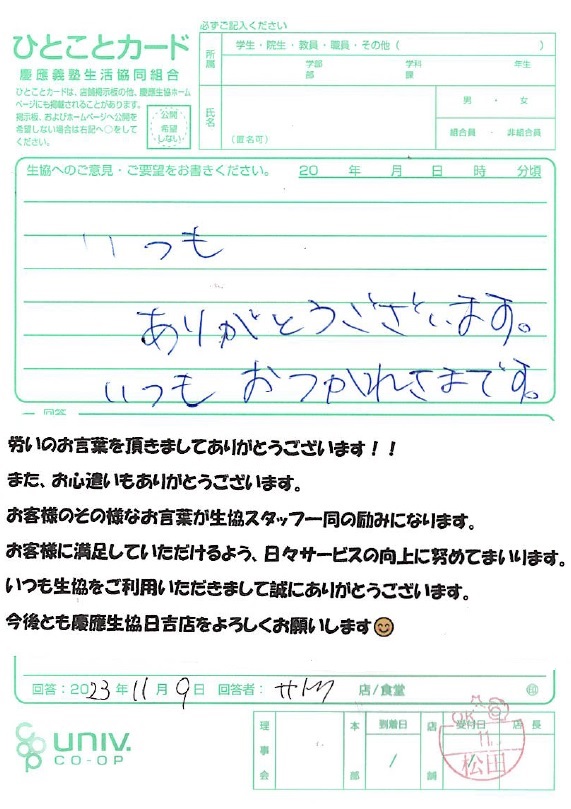 必ずご記入ください
ひとことカード
慶應義塾生活協同組合
ひとことカードは、店舗掲示板の他、慶應生協ホーム
ページにも掲載されることがあります。
掲示板、およびホームページへ公開を
希望しない場合は右記へ○をして
ください。
公開
希望
しない
所属
学生・院生・教員・職員・その他（　　　）
学部 学科 年生
部 課
氏名
（匿名可）
男 ・ 女
組合員 ・ 非組合員
生協へのご意見・ご要望をお書きください。 20 年 月 日 時 分頃
いつも
ありがとうございます。
いつも おつかれさまです。
回答
労いのお言葉を頂きましてありがとうございます！！
また、お心遣いもありがとうございます。
お客様のその様なお言葉が生協スタッフ一同の励みになります。
お客様に満足していただけるよう、日々サービスの向上に努めてまいります。
いつも生協をご利用いただきまして誠にありがとうございます。
今後とも慶應生協日吉店をよろしくお願いします😊
回答：2023年11月9日 回答者： 店/食堂 ㊞
UNIV.
CO-OP
理事会
本部
到着日
/
店舗
受付日
店長
OK
11
松田